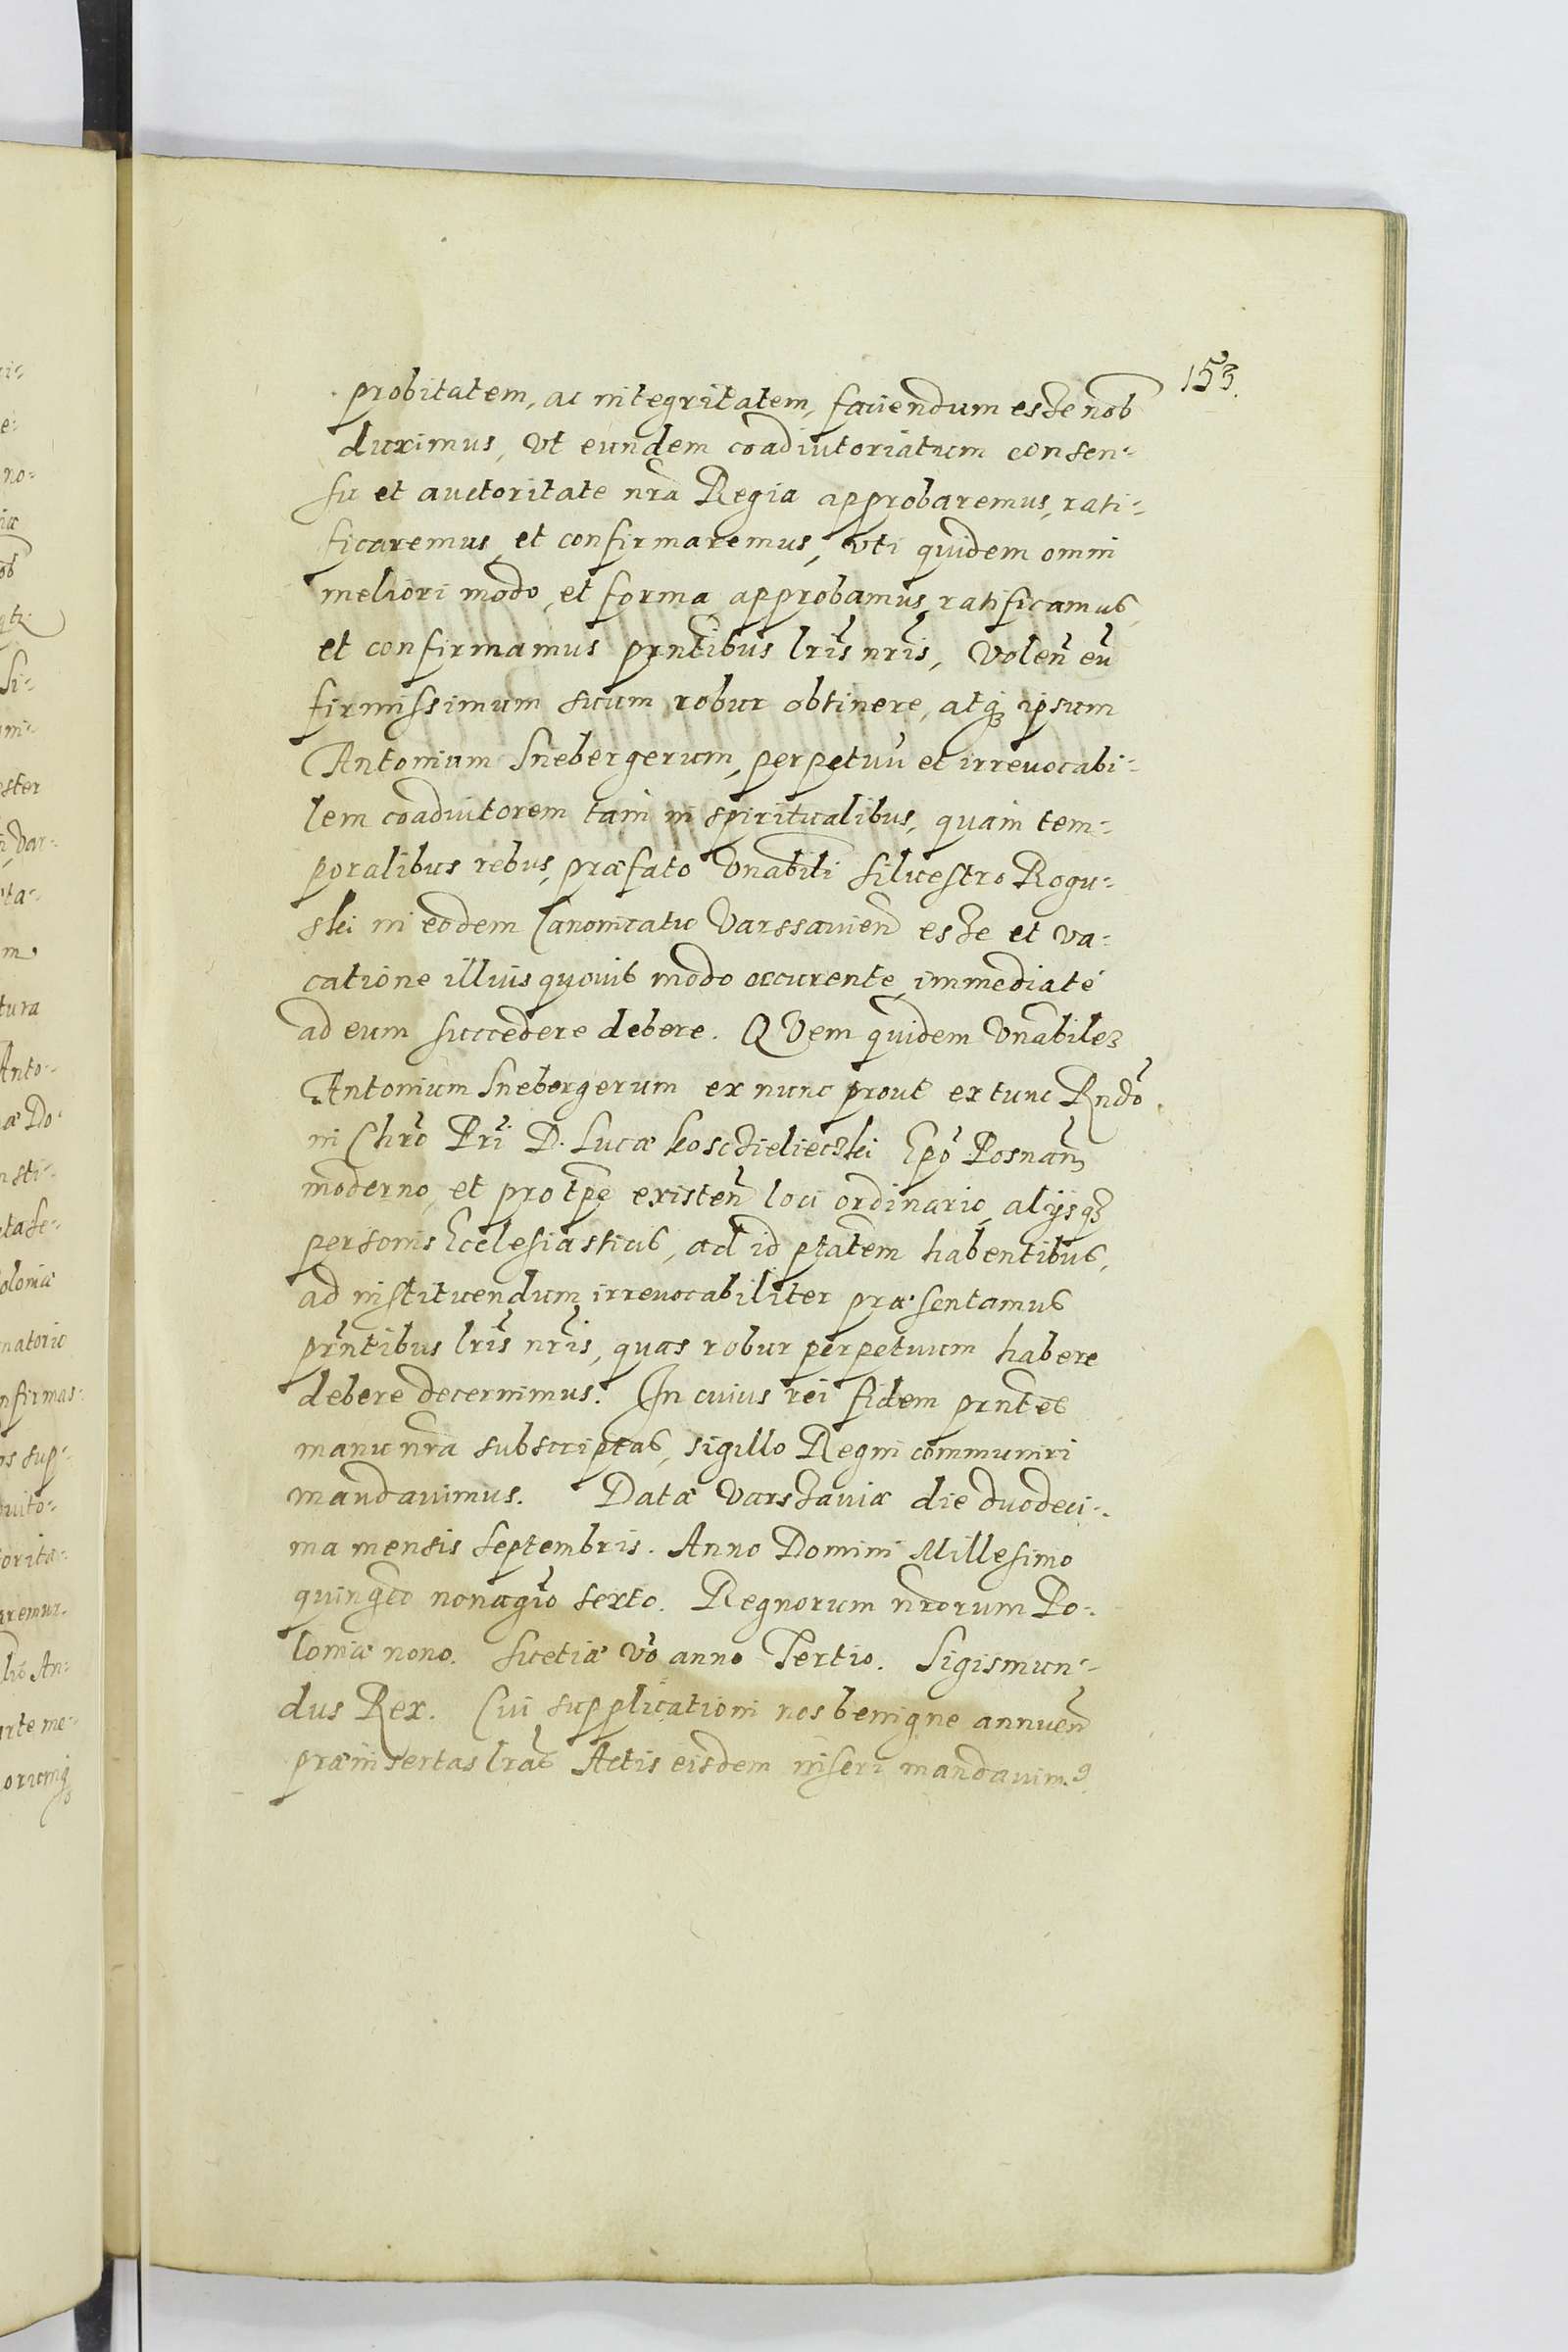 153.
probitatem, ac integritatem, faciendum esse nob
duximus, Vt eundem coadiutoriatum consen-
su et auctoritate nrã Regia approbaremus, rati-
ficaremus, et confirmaremus, vti quidem omni
meliori modo, et forma approbamus, ratificamus,
et confirmamus prntibus lris nris, Volen eũ
firmissimum suum robur obtinere, atq ipsum
Antonium Snebergerum, perpetuũ et irreuocabi-
lem coadiutorem tam in spiritualibus, quam tem-
poralibus rebus, præfato Vnabili Siluestro Rogu-
ski in eodem Canonicatu Varssauien esse et va-
catione illius quouis modo occurente, immediatè
ad eum succedere debere. QVem quidem Vnabilez
Antonium Snebergerum ex nunc prout ex tunc Rndo
in Chro Pri D. Lucæ Kosczieliecski Epo Posnan
moderno, et pro tpe existen loci ordinario, alijsq
personis Ecclesiasticis, ad id ptatem habentibus,
ad instituendum irreuocabiliter præsentamus
prntibus lris nris, quas robur perpetuum habere
debere decernimus. In cuius rei fidem prntes
manu nra subscriptas, sigillo Regni communiri
mandauimus. Datæ Varszauiæ die duodeci-
ma mensis Septembris. Anno Domini Millesimo
quingto nonagio sexto. Regnorum nrorum Po-
loniæ nono. Suetiæ Vo anno Tertio. Sigismun-
dus Rex. Cui supplicationi nos benigne annuen
præinsertas lras Actis eisdem inseri mandauim9